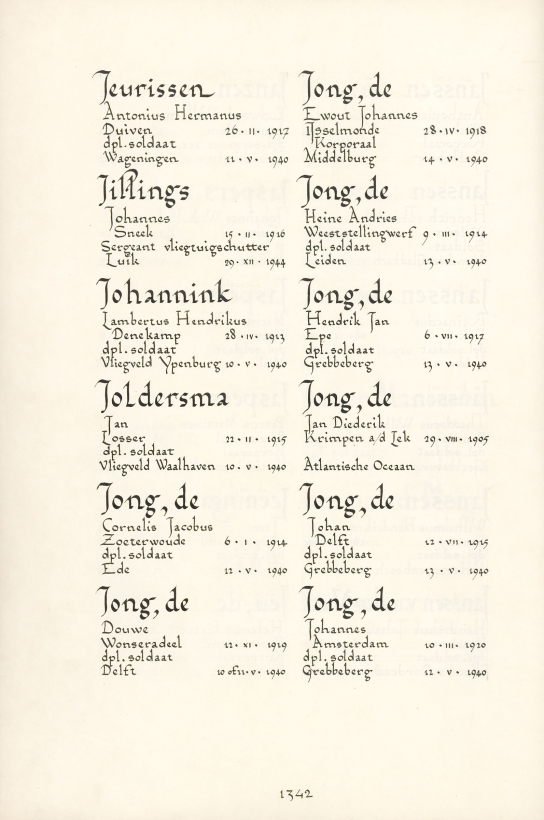 Jeurissen
Antonius Hermanus
Duiven 26 · II · 1917
dpl. soldaat
Wageningen 11 · V · 1940
Jillings
Johannes
Sneek 15 · II · 1916
Sergeant vliegtuigschutter
Luik 29 · XII · 1944
Johannink
Lambertus Hendrikus
Denekamp 28 · IV · 1913
dpl. soldaat
Vliegveld Ypenburg 10 · V · 1940
Joldersma
Jan
Losser 22 · II · 1915
dpl. soldaat
Vliegveld Waalhaven 10 · V · 1940
Jong, de
Cornelis Jacobus
Zoeterwoude 6 · I · 1914
dpl. soldaat
Ede 12 · V · 1940
Jong, de
Douwe
Wonseradeel 12 · XI · 1919
dpl. soldaat
Delft 10 of 11 · V · 1940
Jong, de
Ewout Johannes
IJsselmonde 28 · IV · 1918
Korporaal
Middelburg 14 · V · 1940
Jong, de
Heine Andries
Weststellingwerf 9 · III · 1914
dpl. soldaat
Leiden 13 · V · 1940
Jong, de
Hendrik Jan
Epe 6 · VII · 1917
dpl. soldaat
Grebbeberg 13 · V · 1940
Jong, de
Jan Diederik
Krimpen a/d Lek 29 · VIII · 1905
Atlantische Oceaan
Jong, de
Johan
Delft 12 · VII · 1915
dpl. soldaat
Grebbeberg 13 · V · 1940
Jong, de
Johannes
Amsterdam 10 · III · 1920
dpl. soldaat
Grebbeberg 12 · V · 1940
1342